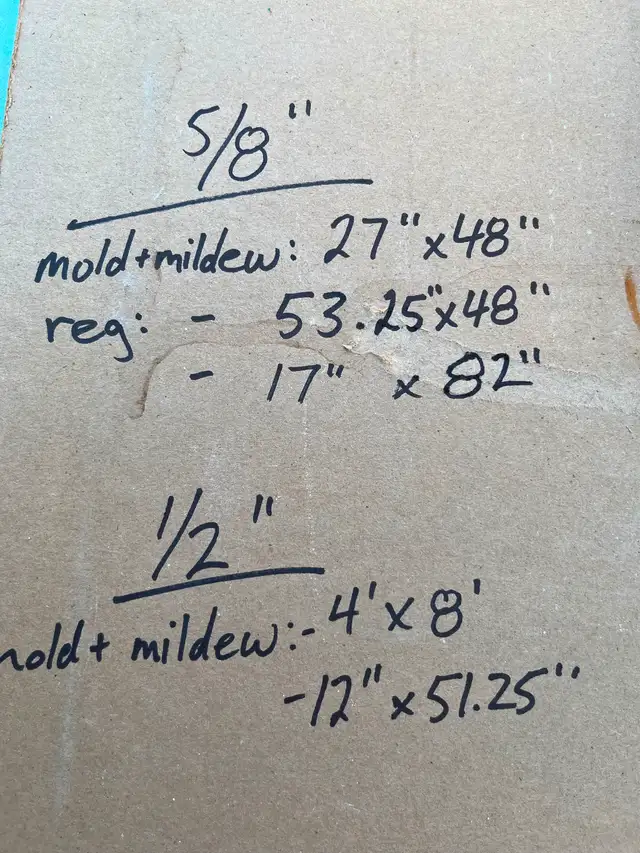 5/8"
mold+mildew: 27"x48"
reg: - 53.25"x48"
- 17" x 82"
1/2"
mold+ mildew:- 4'x8'
-12"x51.25"